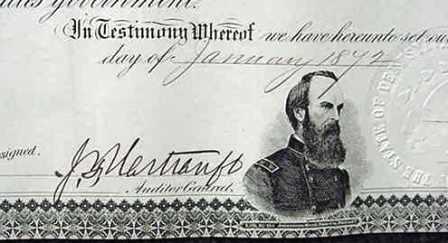 government.
In Testimony Whereof we have hereunto set our
day of January 1872
signed.
J F Hartranft
Auditor General.
THE STATE OF